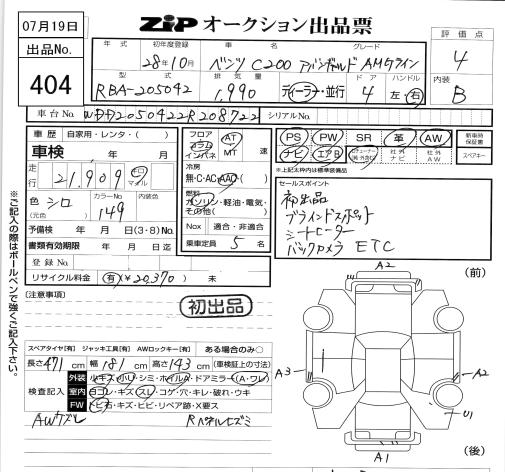 07月19日
出品No.
404
ZiP オークション出品票
年式 初年度登録 車名 グレード
28年10月 ベンツ C200 アバンギャルド AMGライン
型式 排気量 ドア ハンドル
RBA-205042 1,990 ディーラー・並行 4 左・右
評価点
4
内装
B
車台No. WDD2050422R208722 シリアルNo.
車歴 自家用・レンタ・( )
車検 年 月
走行 21,909 キロ マイル
色 シロ (元色) カラーNo. 149 内装色
予備検 年 月 日(3・8)
書類有効期限 年 月 日迄
登録No.
リサイクル料金 有(¥20,370) 未
フロア コラム インパネ AT MT 速
冷房 無・C・AC・AAC
燃料 ガソリン・軽油・電気・その他( )
Nox 適合・非適合
乗車定員 5 名
PS PW SR 革 AW
ナビ エアB 社外ナビ 社外AW
※上記太枠内は標準装備品
新車時保証書
スペアキー
セールスポイント
初出品
ブラインドスポット
シートヒーター
バックカメラ ETC
※ご記入の際はボールペンで強くご記入下さい。
(注意事項)
初出品
スペアタイヤ[有] ジャッキ工具[有] AWロックキー[有] ある場合のみ○
長さ 471 cm 幅 181 cm 高さ 143 cm (車検証上の寸法)
検査記入
外装 小キズ・小U・シミ・ホイルA・ドアミラー(A・ワレ)
室内 ヨゴレ・キズ・スレ・コゲ・穴・キレ・破れ・ウキ
FW トビ石・キズ・ヒビ・リペア跡・X要ス
AWキズレ Rパネルヒズミ
A2 (前)
A3 A2
U1
A1 (後)